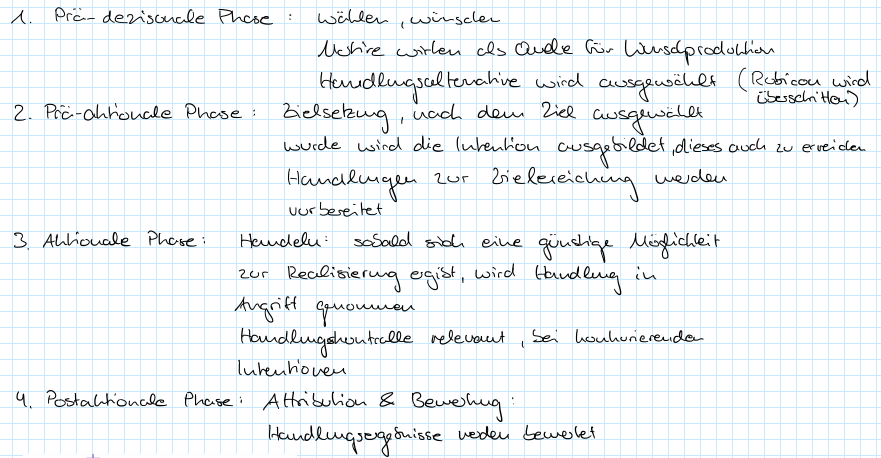 1. Prä-dezisonale Phase : wählen, wünschen
Motive wirken als Quelle für Wunschproduktion
Handlungsalternative wird ausgewählt (Rubicon wird
überschritten)
2. Prä-aktionale Phase : Zielsetzung, nach dem Ziel ausgewählt
wurde wird die Intention ausgebildet, dieses auch zu erreichen
Handlungen zur Zielereichung werden
vorbereitet
3. Aktionale Phase : Handeln: sobald sich eine günstige Möglichkeit
zur Realisierung ergibt, wird Handlung in
Angriff genommen
Handlungskontrolle relevant, bei konkurierenden
Intentionen
4. Postaktionale Phase : Attribution & Bewertung :
Handlungsergebnisse werden bewertet